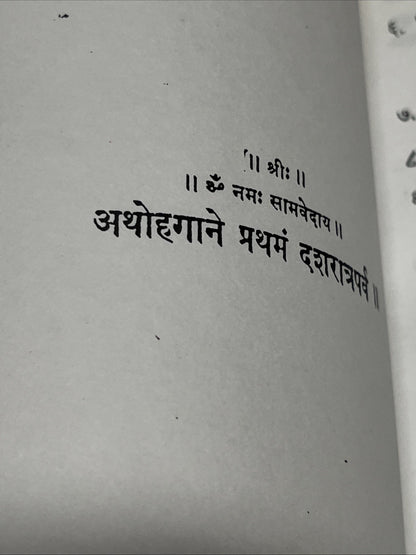 ॥ श्रीः ॥
॥ ॐ नमः सामवेदाय ॥
अथोहगाने प्रथमं दशरात्रपर्व ॥